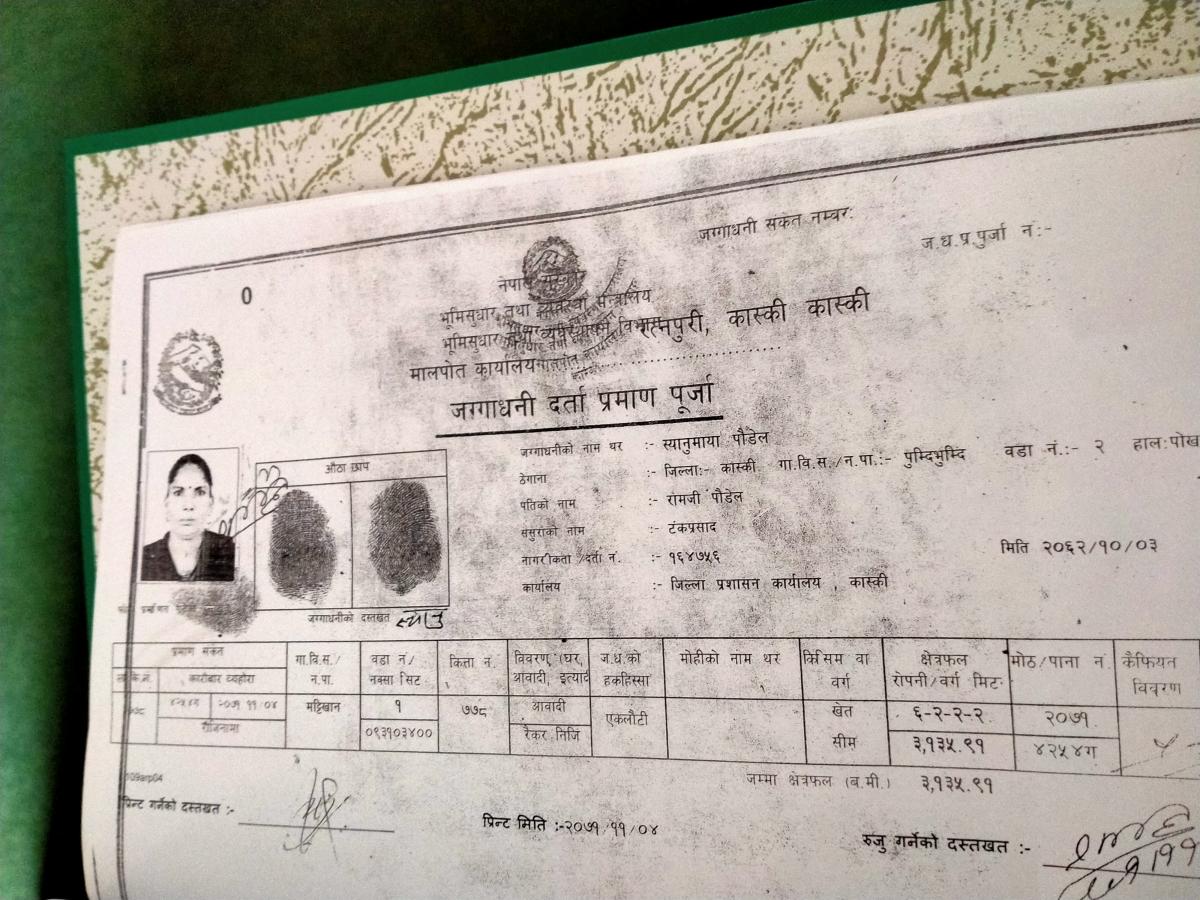 जग्गाधनी संकेत नम्बर:
ज.ध.प्र.पुर्जा नं:-
0
नेपाल सरकार
भूमिसुधार तथा व्यवस्था मन्त्रालय
भूमिसुधार तथा व्यवस्थापन विभाग
कास्की कास्की
मालपोत कार्यालय
जग्गाधनी दर्ता प्रमाण पूर्जा
औंठा छाप
जग्गाधनीको नाम थर :- स्यानुमाया पौडेल
ठेगाना :- जिल्ला:- कास्की गा.वि.स./न.पा.:- पुम्दिभुम्दि वडा नं.:- २ हाल:पोख
पतिको नाम :- रामजी पौडेल
ससुराको नाम :- टंकप्रसाद
नागरीकता /दर्ता नं. :- १६४७५६ मिति २०६२/१०/०३
कार्यालय :- जिल्ला प्रशासन कार्यालय , कास्की
जग्गाधनीको दस्तखत स्यानु
प्रमाण संकेत गा.वि.स./ न.पा. वडा नं/ नक्सा सिट कित्ता नं. विवरण (घर, आवादी, इत्यादि ज.ध.को हकहिस्सा मोहीको नाम थर किसिम वा वर्ग क्षेत्रफल रोपनी/वर्ग मिटर मोठ/पाना नं. कैफियत विवरण
कारोबार व्यहोरा
२०७१ ११/०४ मट्टिखान १ ७७८ आवादी एकलौटी खेत ६-२-२-२ २०७१
राजिनामा ०९३१०३४०० रैकर निजि सीम ३,१३५.९१ ४२५४ग
जम्मा क्षेत्रफल (ब.मी.) ३,१३५.९१
प्रिन्ट गर्नेको दस्तखत :-
प्रिन्ट मिति :-२०७१/११/०४
रुजु गर्नेको दस्तखत :-